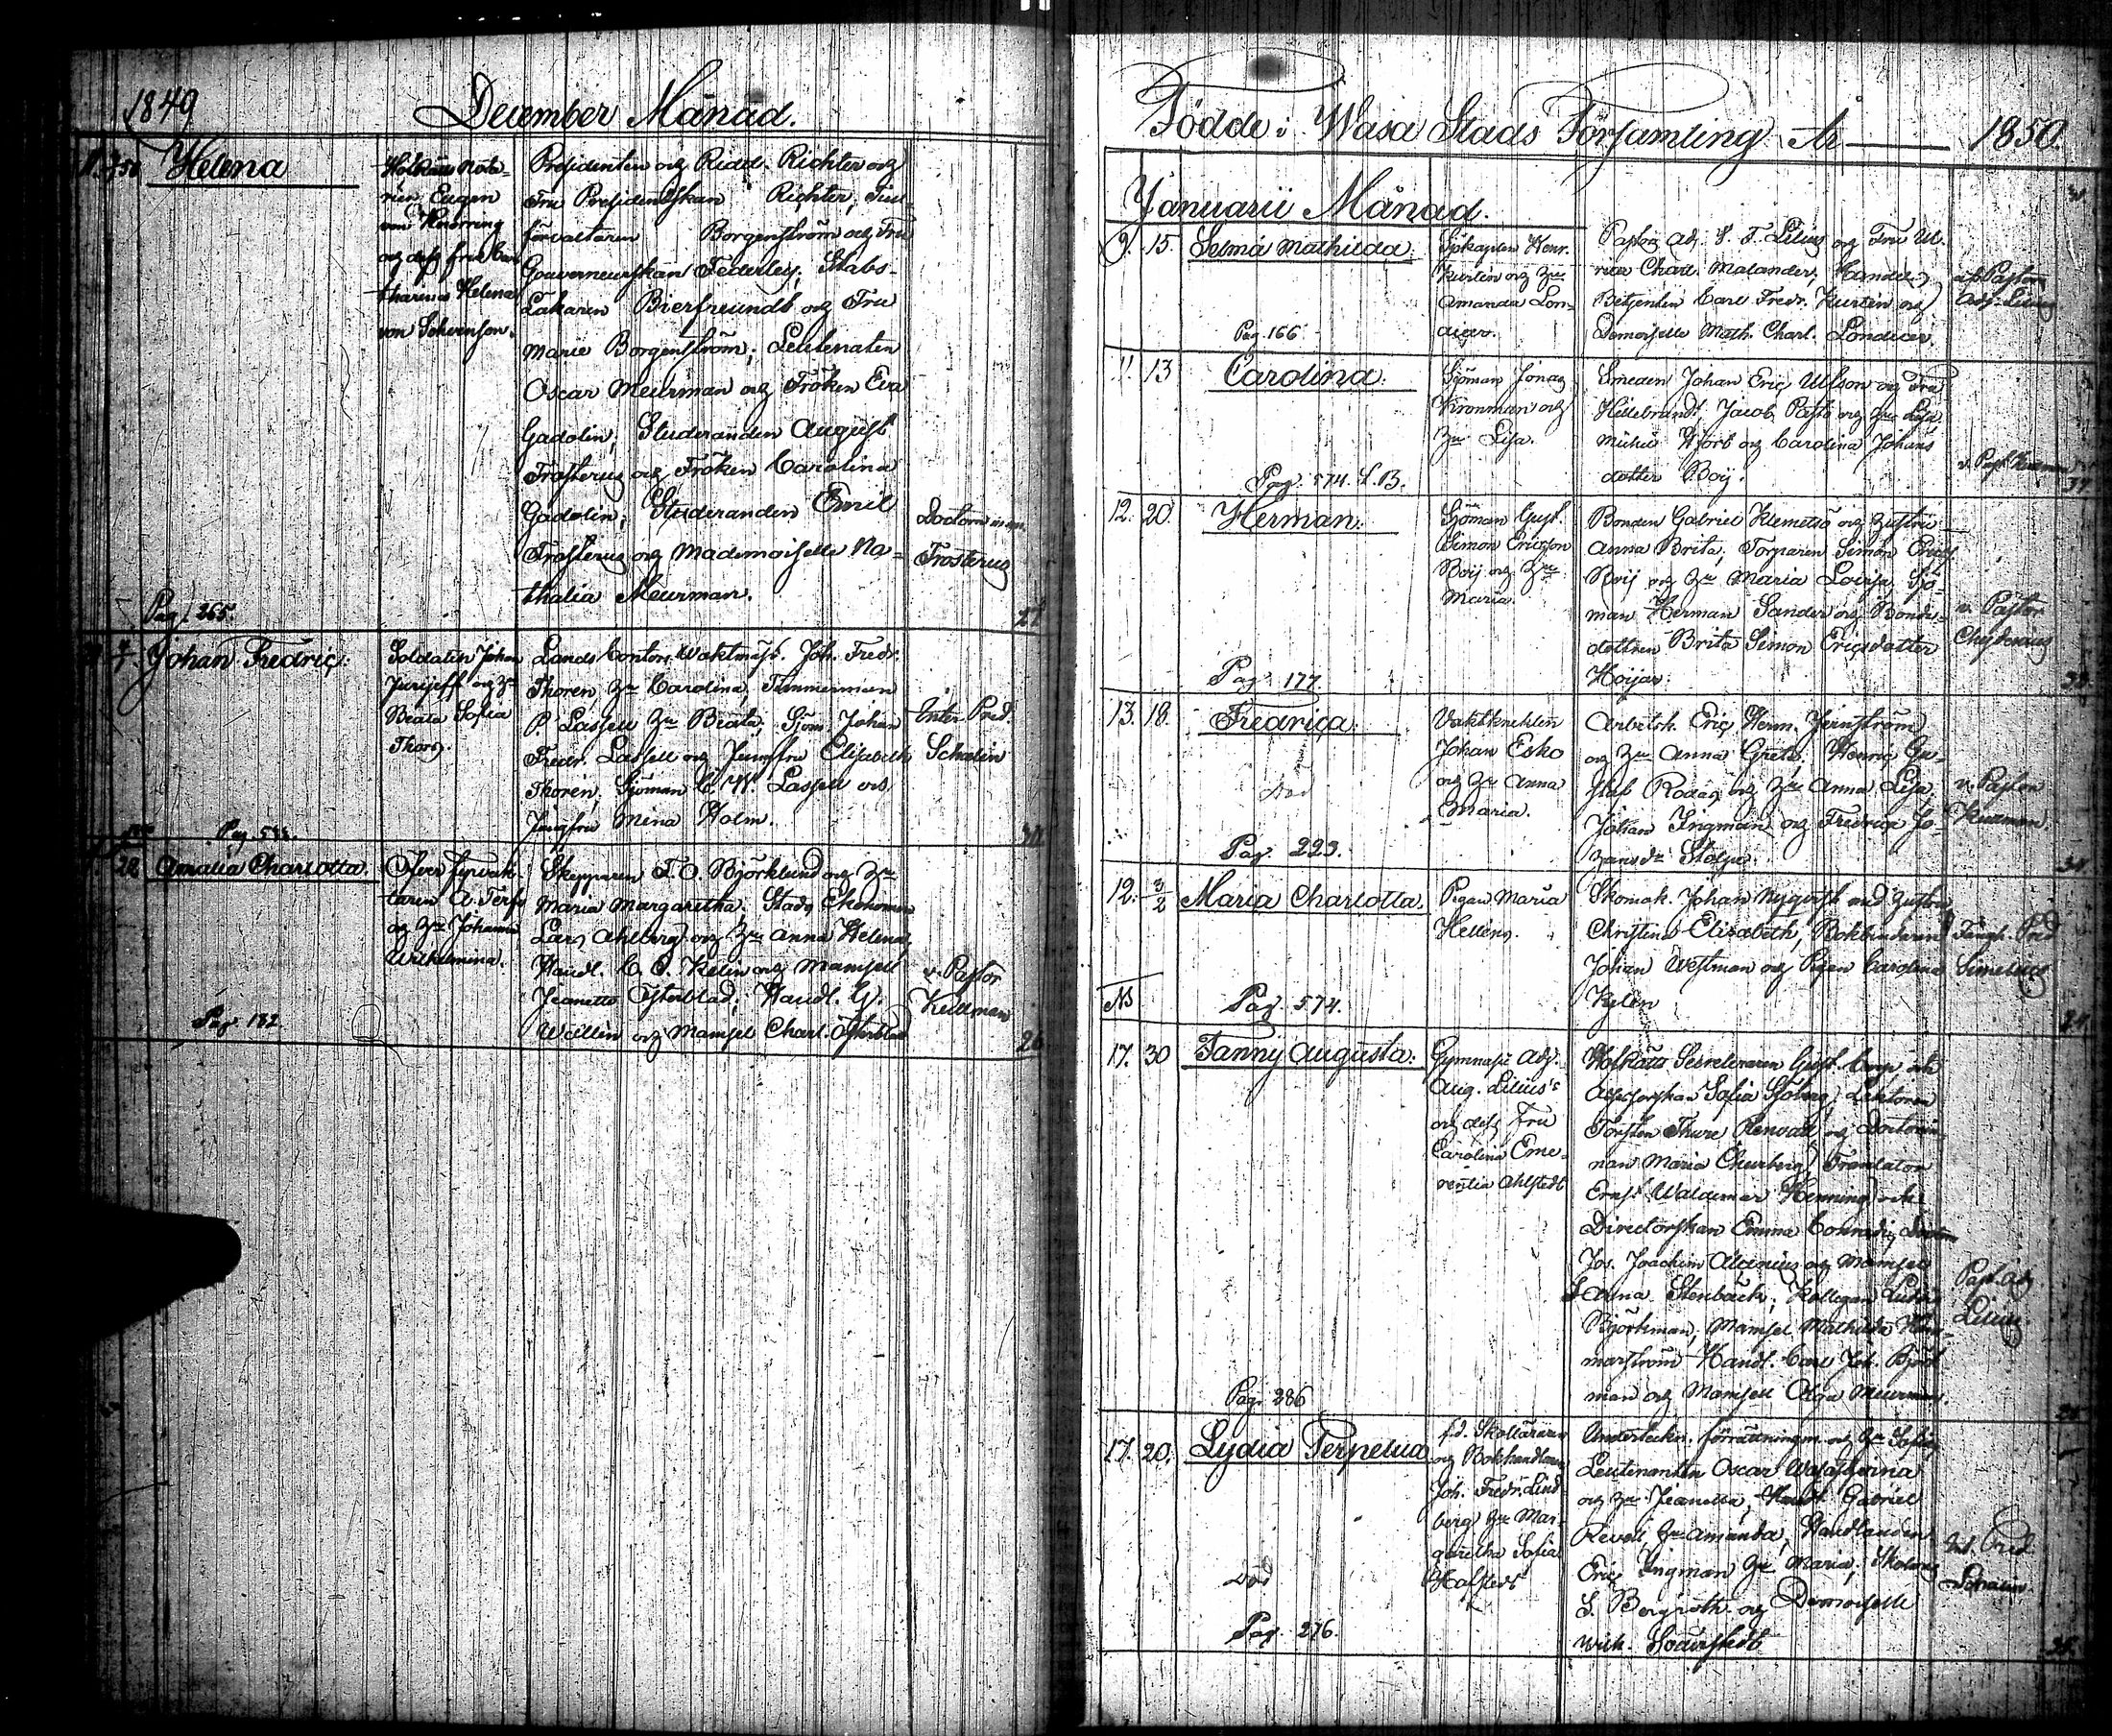 1849
December Månad.
Helena
Hofrätts Nota-
rien Eugen
von Knorring
och dess fru Ca-
tharina Helena
von Schvenson.
Presidenten och Ridd. Richter och
Fru Presidentskan Richter, Tull-
förvaltaren Borgenström och Fru
Gouverneurskan Federley, Stabs-
Läkaren Bierfreundt och Fru
Marie Borgenström, Leutenaten
Oscar Meurman och Fröken Eva
Gadolin, Studeranden August
Frosterus och Fröken Carolina
Gadolin, Studeranden Emil
Frosterus och Mademoiselle Na-
thalia Meurman.
Doctorn
Frosterus
Pag. 265.
27
Johan Fredric:
Soldaten Johan
Jurijeff och Hu
Beata Sofia
Thors.
Lands Contors Waktmäst. Joh. Fredr.
Thoren, Hu Carolina, Timmerman
P. Lassell Hu Beata, Sjöm. Johan
Fredr. Lassell och Jungfru Elisabeth
Thorén, Sjöman C. W. Lassell och
Jungfru Mina Holm.
Inter. Pred.
Schalin
Pag. 533.
22 Amalia Charlotta.
Öfver fyrvak-
taren A. Terfs
och Hu Johanna
Wilhelmina.
Skepparen F. O. Björklund och Hu
Maria Margaretha. Stads Ekonomen
Lars Ahlberg och Hu Anna Helena,
Handl. C. O. Kelin och Mamsell
Jeanette Österblad, Handl. G.
Wallin och Mamsel Charl. Österblad
v. Pastor
Kellman
Pag. 182.
26
Födde i Wasa Stads Församling År 1850.
Januarii Månad.
9. 15. Selma Mathilda.
Sjökapten Henr.
Kurtén och Hu
Amanda Lon-
dicer.
Pastors Adj. L. F. Lilius och Fru Ul-
rica Charl. Malander, Handels
Betjenten Carl Fredr. Kurtén och
Demoiselle Math. Charl. Londicer.
af Pastor
Adj. Lilius
Pag. 166
11. 13 Carolina.
Sjöman Jonas
Kronman och
Hu Lisa.
Smeden Johan Eric Ulfson och Fru
Hillebrandt, Jacob Pasto och Hu Lisa,
Michel Hjort och Carolina Johans
dotter Boij.
Pag. 574. L. B.
37
12. 20. Herman.
Sjöman Gust.
Simon Ericsson
Boij och Hu
Maria.
Bonden Gabriel Klemetsö och Hustru
Anna Brita, Torparen Simon Erics
Boij och Hu Maria Lovisa, Sjö-
man Herman Sander och Bonde-
dottren Brita Simon Ericsdotter
Höijar.
v. Pastor
Chydenius
Pag. 177.
13. 18. Fredrica.
Vaktknekten
Johan Esko
och Hu Anna
Maria.
Död
Arbetsk. Eric Herm. Jernström
och Hu Anna Greta, Henric Gu-
staf Rodas och Hu Anna Lisa,
Johan Ingman och Fredrica Jo-
hansdr Stolpe.
v. Pastor
Kellman
Pag. 223.
12. 3/2 Maria Charlotta.
Pigan Maria
Hellens.
Skomak. Johan Nyqvist med Hustru
Christina Elisabeth, Bokbindaren
Johan Westman och Pigan Carolina
Kylén
Fängh. Pred
Simelius
Ns
Pag. 574.
24.
17. 30 Fanny Augusta:
Gymnasii Adj.
Aug. Lilius's
och dess Fru
Carolina Eme-
rentia Ahlstedt
Hofrätts Secreteraren Gust. Camp och
Assessorskan Sofia Sjöberg, Lektoren
Torsten Thure Renvall och Doctorin-
nan Maria Churberg, Translator
Ernst Waldemar Henning och
Directorskan Emma Conradi, Doctor
Jos. Joachim Alcenius och Mamsell
Anna Stenbäck, Kollegan Ludv.
Björkman, Mamsel Mathilda Ham-
marström Handl. Carl Joh. Björk
man och Mamsell Olga Meurman.
Past. Adj
Lilius.
Pag. 286
17. 20. Lydia Perpetua
f.d. Skolläraren
och Bokhandlaren
Joh. Fredr. Lind-
berg Hu Mar-
garetha Sofia
Hofstedt
Underteckn. förrättningsm. och Hu Sofia,
Leutenanten Oscar Wasastjerna
och Hu Jeanetta, Handl. Gabriel
Revell, Hu Amanda, Handlanden
Eric Ingman Hu Maria,
S. Bergroth och Demoiselle
Wilh. Söderstedt
Int. Pred
Schalin.
Död
Pag. 276.